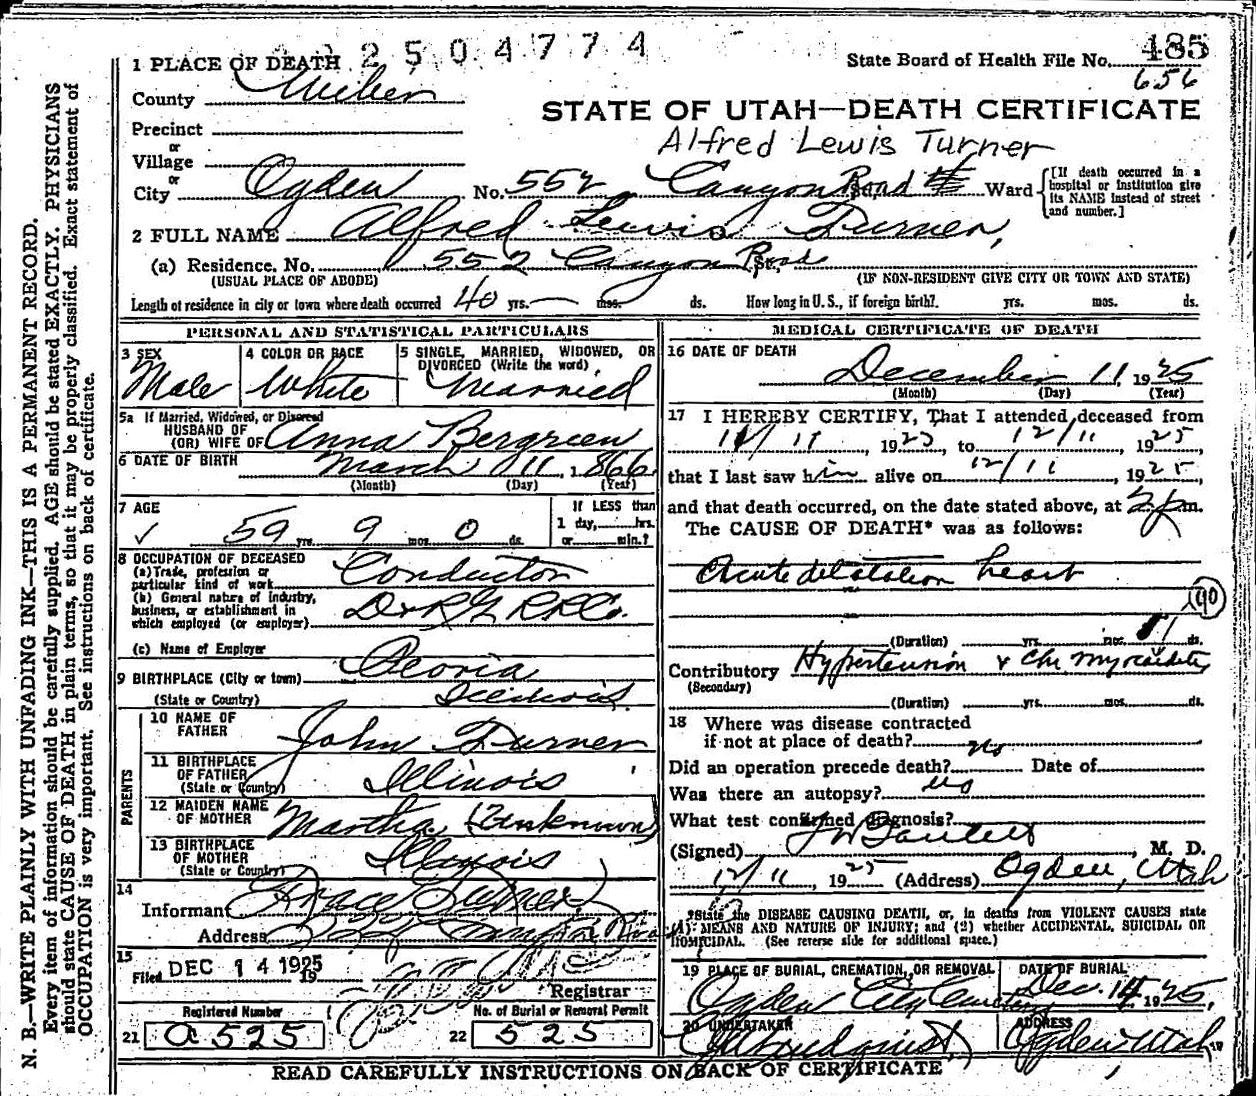 2504774
1 PLACE OF DEATH
State Board of Health File No. 485
656
County Weber
STATE OF UTAH—DEATH CERTIFICATE
Precinct
or
Village
Alfred Lewis Turner
or
City Ogden No. 552 Canyon Road St. Ward
[If death occurred in a hospital or institution give its NAME instead of street and number.]
2 FULL NAME Alfred Lewis Turner,
(a) Residence. No. 552 Canyon Road St.,
(USUAL PLACE OF ABODE) (IF NON-RESIDENT GIVE CITY OR TOWN AND STATE)
Length of residence in city or town where death occurred 40 yrs. — mos. ds. How long in U. S., if foreign birth? yrs. mos. ds.
PERSONAL AND STATISTICAL PARTICULARS
3 SEX
Male
4 COLOR OR RACE
White
5 SINGLE, MARRIED, WIDOWED, OR
DIVORCED (Write the word)
Married
5a If Married, Widowed, or Divorced
HUSBAND OF
(OR) WIFE OF Anna Bergreen
6 DATE OF BIRTH March 11, 1866
(Month) (Day) (Year)
7 AGE
✓ 59 yrs. 9 mos. 0 ds.
If LESS than
1 day, hrs.
or min.?
8 OCCUPATION OF DECEASED
(a) Trade, profession or
particular kind of work Conductor
(b) General nature of industry,
business, or establishment in
which employed (or employer) D & R G R R Co.
(c) Name of Employer
9 BIRTHPLACE (City or town) Peoria
(State or Country) Illinois.
PARENTS
10 NAME OF
FATHER John Turner
11 BIRTHPLACE
OF FATHER
(State or Country) Illinois
12 MAIDEN NAME
OF MOTHER Martha (Unknown)
13 BIRTHPLACE
OF MOTHER
(State or Country) Illinois
14
Informant Grace Turner
Address 552 Canyon Road
15
Filed DEC 14 1925
19
Registrar
Registered Number
21 a 525
No. of Burial or Removal Permit
22 525
MEDICAL CERTIFICATE OF DEATH
16 DATE OF DEATH
December 11, 1925
(Month) (Day) (Year)
17 I HEREBY CERTIFY, That I attended deceased from
11/11, 1925 to 12/11, 1925
that I last saw him alive on 12/11, 1925,
and that death occurred, on the date stated above, at 2 p m.
The CAUSE OF DEATH* was as follows:
Acute delatation heart
90
(Duration) yrs. mos. 1 ds.
Contributory Hypertension & Chr myocarditis
(Secondary)
(Duration) yrs. mos. ds.
18 Where was disease contracted
if not at place of death? no
Did an operation precede death? Date of
Was there an autopsy? no
What test confirmed diagnosis?
(Signed) , M. D.
12/11, 1925 (Address) Ogden, Utah
*State the DISEASE CAUSING DEATH, or, in deaths from VIOLENT CAUSES state
(1) MEANS AND NATURE OF INJURY; and (2) whether ACCIDENTAL, SUICIDAL OR
HOMICIDAL. (See reverse side for additional space.)
19 PLACE OF BURIAL, CREMATION, OR REMOVAL
Ogden City Cemetery
DATE OF BURIAL
Dec. 14 1925,
20 UNDERTAKER
ADDRESS
Ogden Utah
READ CAREFULLY INSTRUCTIONS ON BACK OF CERTIFICATE
N. B.—WRITE PLAINLY WITH UNFADING INK—THIS IS A PERMANENT RECORD.
Every item of information should be carefully supplied. AGE should be stated EXACTLY. PHYSICIANS
should state CAUSE OF DEATH in plain terms, so that it may be properly classified. Exact statement of
OCCUPATION is very important. See instructions on back of certificate.